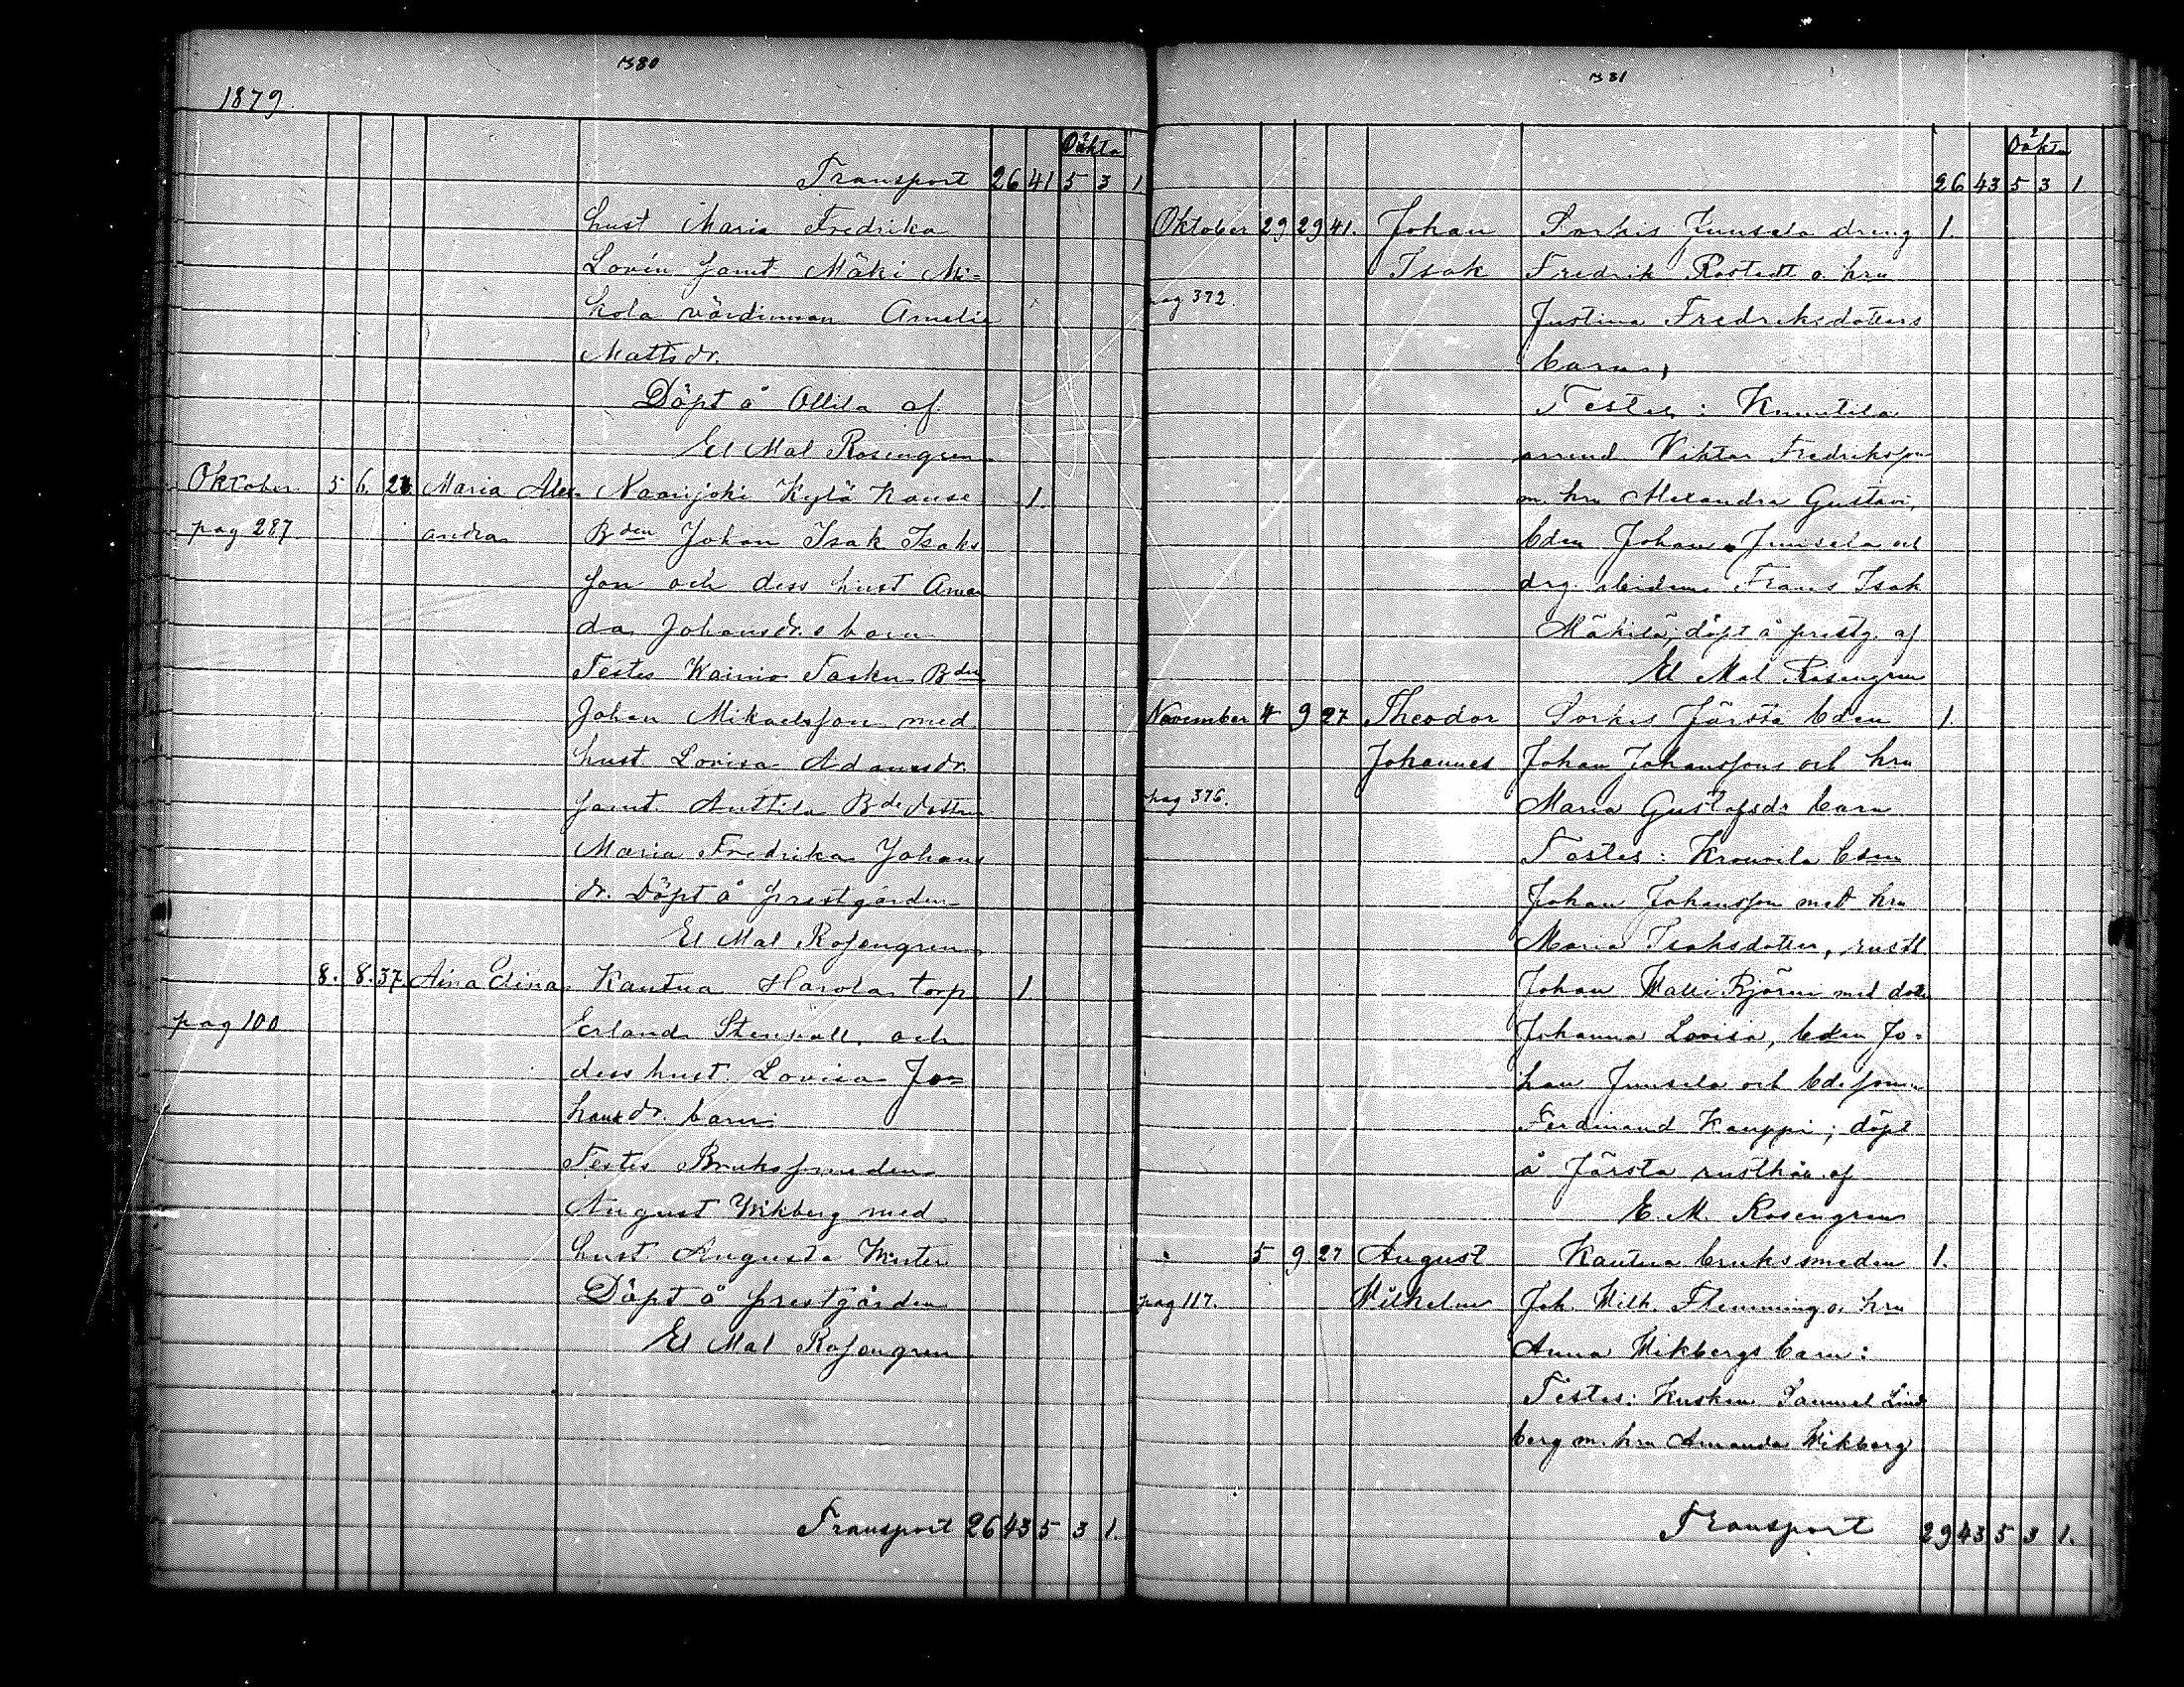 1380
1879
Oäkta
Transport 26 41 5 3 1
hust Maria Fredrika
Lovén samt Mäki Mi=
kola värdinnan Amelie
Mattsdr.
Döpt å Ollila af
El Mal Rosengren
Oktober 5 6. Maria Alex- Naarijoki Kylä Kause 1.
pag 287 andra Bden Johan Isak Isaks
son och dess hust Aman
da Johansdr.s barn
Testes Wainio Tasku Bden
Johan Mikaelsson med
hust Lovisa Adamsdr.
samt Anttila Bde dottren
Maria Fredrika Johans
dr. Döpt å prestgården
El Mal Rosengren
8. 8. 37. Aina Elina Kautua Harola torp 1
pag 100 Erland Stenvall och
dess hust. Lovisa Jo=
hansdr. barn
Testes Brukssmeden
August Wikberg med
hust. Augusta Winter
Döpt å prestgården
El Mal Rosengren
Transport 26 43 5 3 1.
1381
Oäkta
26 43 5 3 1
Oktober 29 29 41. Johan Sorkis Junsala dreng 1.
Isak Fredrik Rostedt o. hru
pag 372. Justina Fredriksdotters
barn,
Testes: Knuutila
arrend. Viktor Fredriksson
m. hru Alexandra Gustavi,
bden Johan Junsala och
drg. Frans Isak
Mäkilä; döpt å prestg. af
El Mal Rosengren
November 4 9 27 Theodor Sorkis Järsta bden 1.
Johannes Johan Johanssons och hru
pag 376. Maria Gustafsdr barn
Testes: Krouvila bden
Johan Johansson med hru
Maria Isaksdotter, rusth.
Johan Walli Björni med dott.
Johanna Lovisa, bden Jo=
han Junsela och bdesonen
Ferdinand Kauppi; döpt
å Järsta rusthåll af
E. M. Rosengren
5 9 27 August Kautua bruksmeden 1.
pag 117. Wilhelm Joh. Wilh. Flemming o. hru
Anna Wikbergs barn:
Testes: Kusken Samuel Lind
berg m. hru Amanda Wikberg
Transport 29 43 5 3 1.